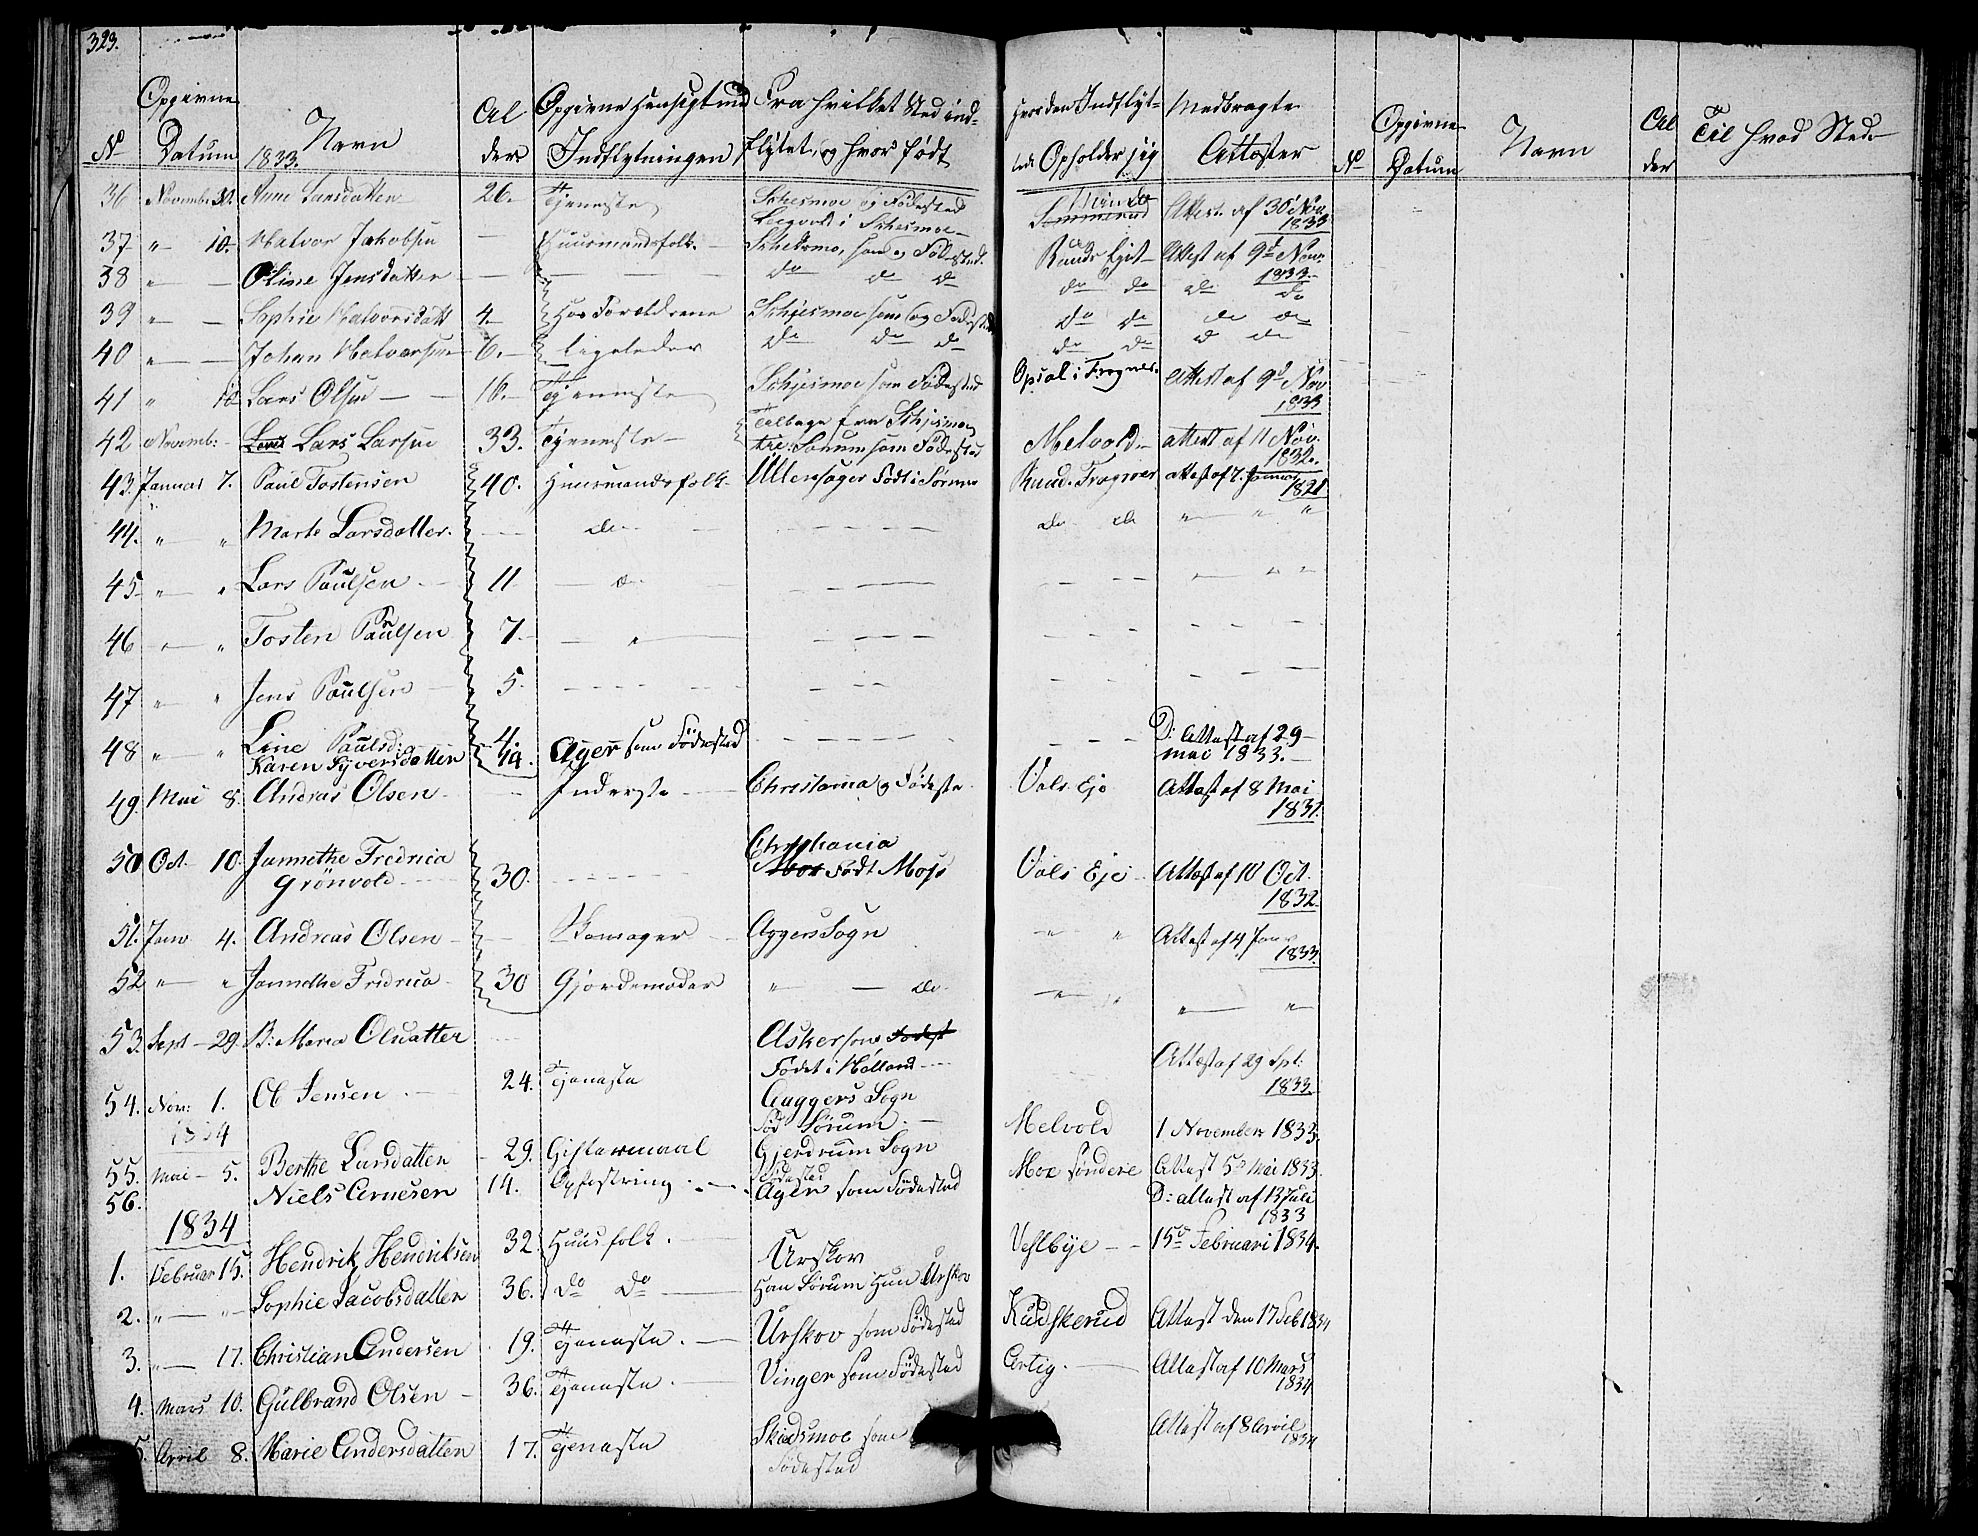 323.
Opgivne
No Datum
1833. Navn
Al
der
Opgivne Hensigt med
Indflytningen
Fra hvilket Sted ind-
flyttet, og hvor født
Hvor den Indflyt-
tede Opholder sig
Medbragte
Attester
No
Opgivne
Datum
Navn
Al
der
Til hvad Sted
36 Novemb: 30. Anne Larsdatter 26. Tjeneste Schesmoe og Fødested Attest af 30 Nov 1833
37 " 10. Halvor Jakobsen Huusmandsfolk Schesmo, som og Fødested. Ruuds Eget Attest af 9de Nov. 1833.
38 " Oline Jensdatter do do do do do do do
39 " Sophie Halvorsdatt 4. Hos Forældrene Schjesmoe som og Fødested do do do do
40 " Johan Halvorsen 6. ligeledes do do do do do do do
41 " 10 Lars Olsen 16. Tjeneste Schjesmoe som Fødested Opsal i Frogner. Attest af 9d Nov 1833
42 Novemb: Lars Larsen 33. Tjeneste Tilbage fra Schjesmoe
til Sørum som Fødested Melvold attest af 11 Nov. 1832.
43. Januar 7. Paul Tostensen 40. Huusmandsfolk Ullensager Født i Sørum Ruud. Frogner attest af 7. Januar 1821
44. " " Marte Larsdatter. do do do " " "
45 " " Lars Paulsen 11 do
46 " " Tosten Paulsen 7.
47 " " Jens Paulsen 5.
48 " " Line Paulsd: 4
Karen Syversdatter 14. Ager som Fødested D: Attest af 29 mai 1833.
49. Mai 8. Andras Olsen Inderste Christiania og Fødeste Vols Eje Attest af 8 Mai 1831.
50 Oct. 10. Jannethe Fredrica
Grønvold 30. Christiania
Født Moss Vols Eje Attest af 10 Oct. 1832.
51. Janv 4. Andreas Olsen Skomager Aggers Sogn " " Attest af 4. Janv 1833.
52 " " Jannethe Fredrica 30 Gjordemoder " do. " " " "
53. Sept 29. B: Maria Olsdatter Asker som Fødest
Født i Holland Attest af 29 Spt: 1833.
54. Nov: 1. Ol Jensen 24. Tjeneste Auggers Sogn
Fød Sørum. Melvold 1 November 1833.
1834
55. Mai 5. Berthe Larsdatter 29. Giftermaal Gjerdrum Sogn
Fødested Moe søndere Attest 5d Mai 1833.
56. Niels Arnesen 14. Opfostring. Ager som Fødested D: attest af 13 Juli 1833
1834
1. Februar 15. Hendrik Hendriksen 32 Huusfolk. Urskov Vehlbye 15d Februari 1834.
2. " " Sophie Jacobsdatter 36. do do Han Sørum Hun Urskov
3. " 17. Christian Andersen 19. Tjeneste. Urskov som Fødested Kudskerud Attest den 17 Feb 1834
4. Mars 10. Gulbrand Olsen 36. Tjeneste. Vinger som Fødested Artig. Attest af 10 Mars 1834
5. April 8. Marie Andersdatter 17. Tjeneste Skedsmoe som
Fødested Attest af 8 April 1834